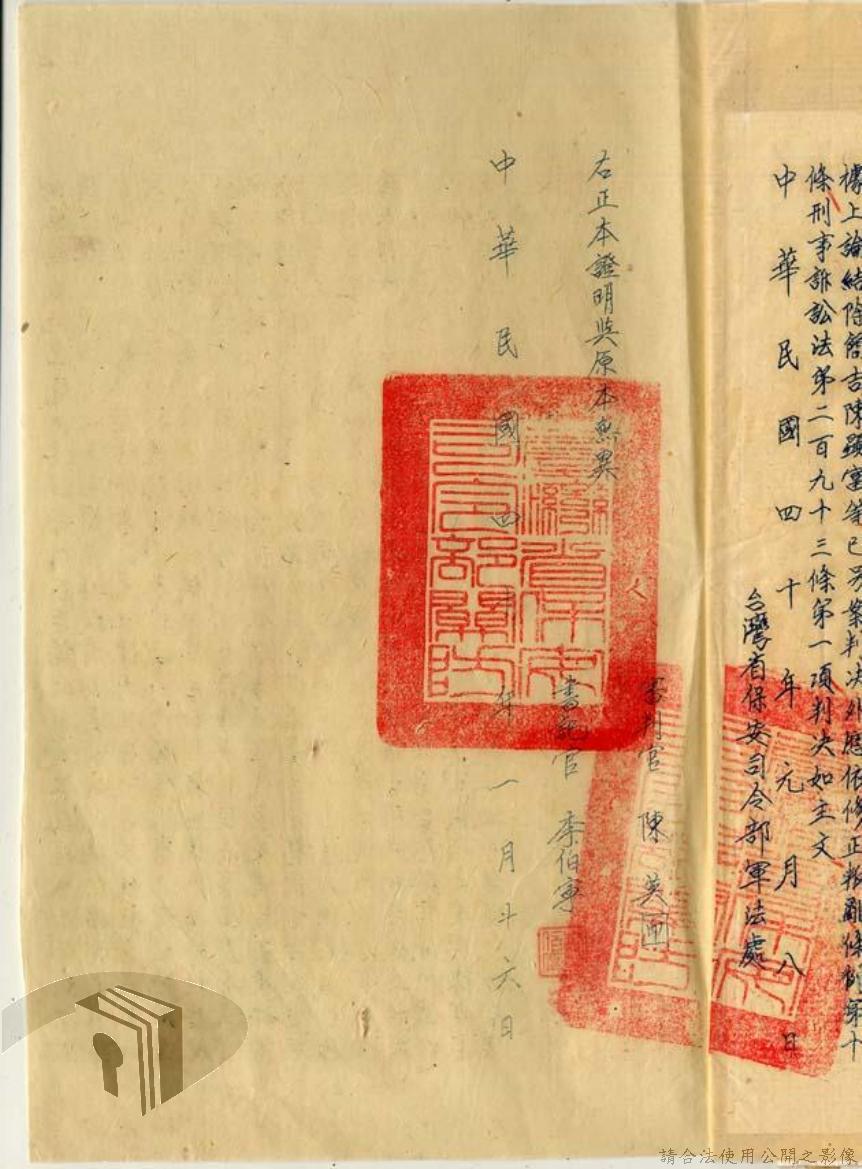 據上論結除簡吉陳顯富等已另案判決外應依修正叛亂條例第十
條刑事訴訟法第二百九十三條第一項判決如主文
中華民國四十年元月八日
台灣省保安司令部軍法處
審判官 陳英
右正本證明與原本無異
書記官 李伯寧
中華民國四十年一月廿六日
臺灣省保安
司令部關防
請合法使用公開之影像